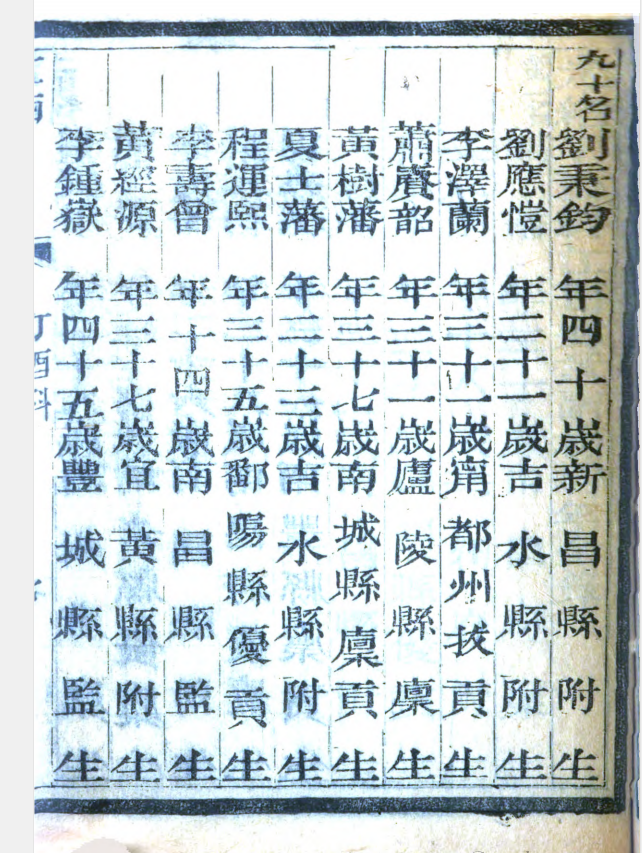 九十名劉秉鈞年四十歲新昌縣附生
劉應愷年二十一歲吉水縣附生
李澤蘭年三十一歲甯都州拔貢生
蕭賡韶年三十一歲廬陵縣廩生
黃樹藩年三十七歲南城縣廩貢生
夏士藩年二十三歲吉水縣附生
程運熙年三十五歲鄱陽縣優貢生
李壽曾年十四歲南昌縣監生
黃經源年三十七歲宜黃縣附生
李鍾嶽年四十五歲豐城縣監生
丁酉科